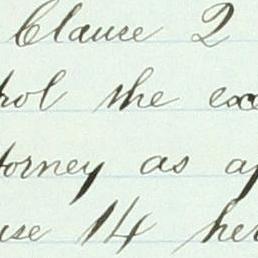 Clause 2
rol the exc
torney as ap
use 14 her